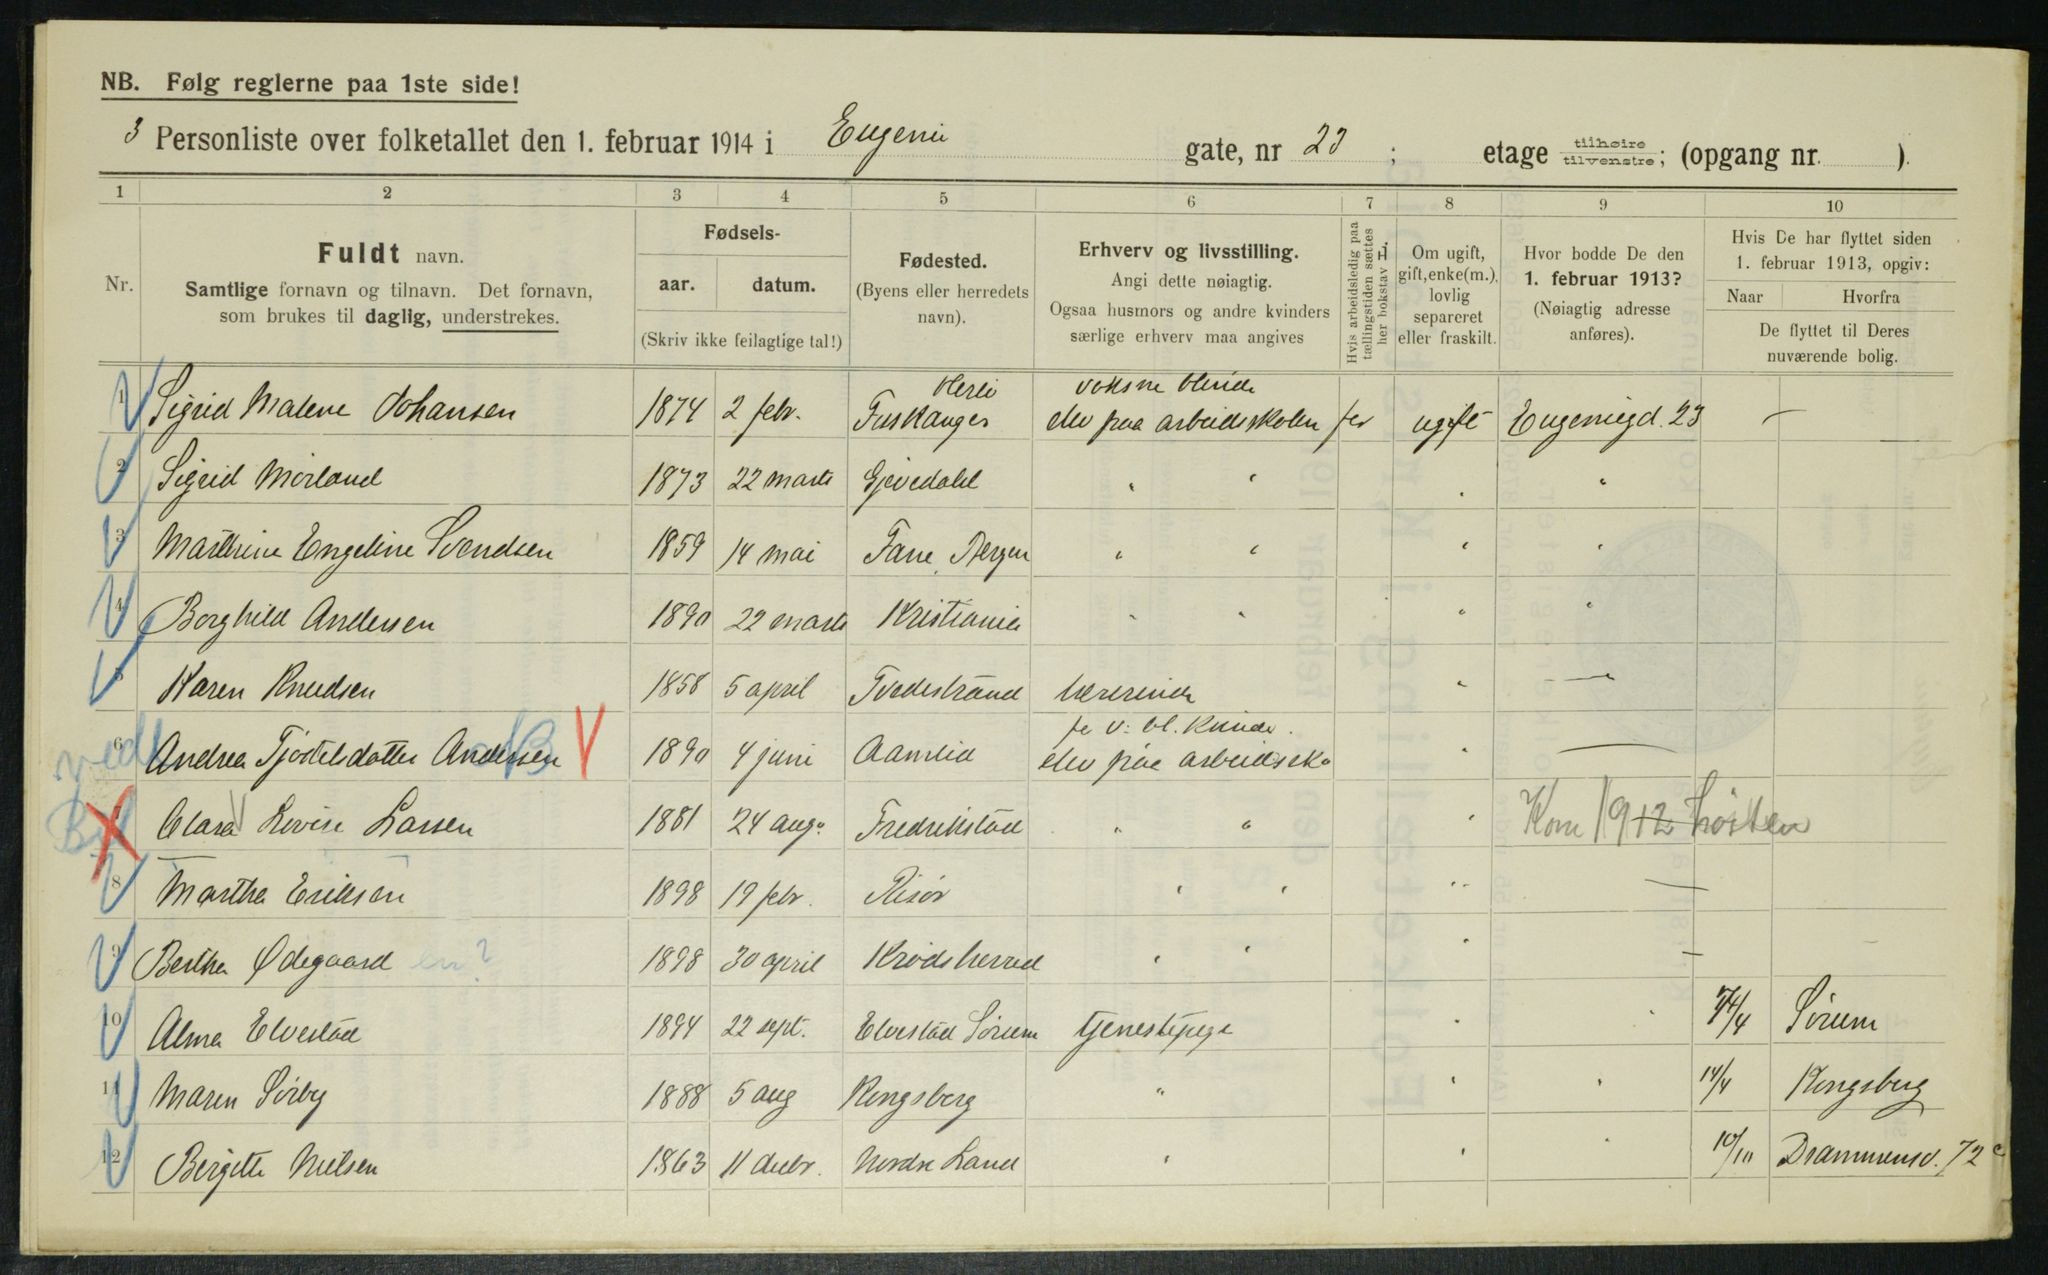 NB. Følg reglerne paa 1ste side!
3 Personliste over folketallet den 1. februar 1914 i Eugenie gate, nr 23; etage tilhøire tilvenstre; (opgang nr. ).
1 2 3 4 5 6 7 8 9 10
Nr.
Fuldt navn.
Samtlige fornavn og tilnavn. Det fornavn,
som brukes til daglig, understrekes.
Fødsels-
aar. datum.
(Skriv ikke feilagtige tal!)
Fødested.
(Byens eller herredets
navn).
Erhverv og livsstilling.
Angi dette nøiagtig.
Ogsaa husmors og andre kvinders
særlige erhverv maa angives
Hvis arbeidsledig paa
tællingstiden sættes
her bokstav L.
Om ugift,
gift, enke(m.),
lovlig
separeret
eller fraskilt.
Hvor bodde De den
1. februar 1913?
(Nøiagtig adresse
anføres).
Hvis De har flyttet siden
1. februar 1913, opgiv:
Naar Hvorfra
De flyttet til Deres
nuværende bolig.
voksne blinde
1 Sigrid Malene Johansen 1874 2 febr. elev paa arbeidsskolen for ugift Eugeniegd. 23 –
2 Sigrid Mørland 1873 22 marts Gjevedahl " " " "
3 Marthine Engeline Svendsen 1859 14 mai Fane, Bergen " " " "
4 Borghild Andersen 1890 22 marts Kristiania " " " "
5 Karen Knudsen 1858 5 april Tvedestrand lærerinde " —
f. v. bl. Kvinder.
6 Andrea Tjøstelsdatter Andersen 1890 4 juni Aamlid elev paa arbeidssk. " —
7 Clara Lovise Larsen 1881 24 aug. Fredrikstad " " " Kom 1912 høsten
8 Martha Eriksen 1898 19 febr. Risør " " " —
9 Bertha Ødegaard en? 1898 30 april Krødsherred " " " –
10 Alma Elvestad 1894 22 sept. Elvestad Sørum tjenestepige " " 14/4 Sørum
11 Maren Sørby 1888 5 aug Kongsberg " " " 14/4 Kongsberg
12 Bergitte Nielsen 1863 11 decbr. Nordre Land " " " 10/10 Drammensv. 72 c